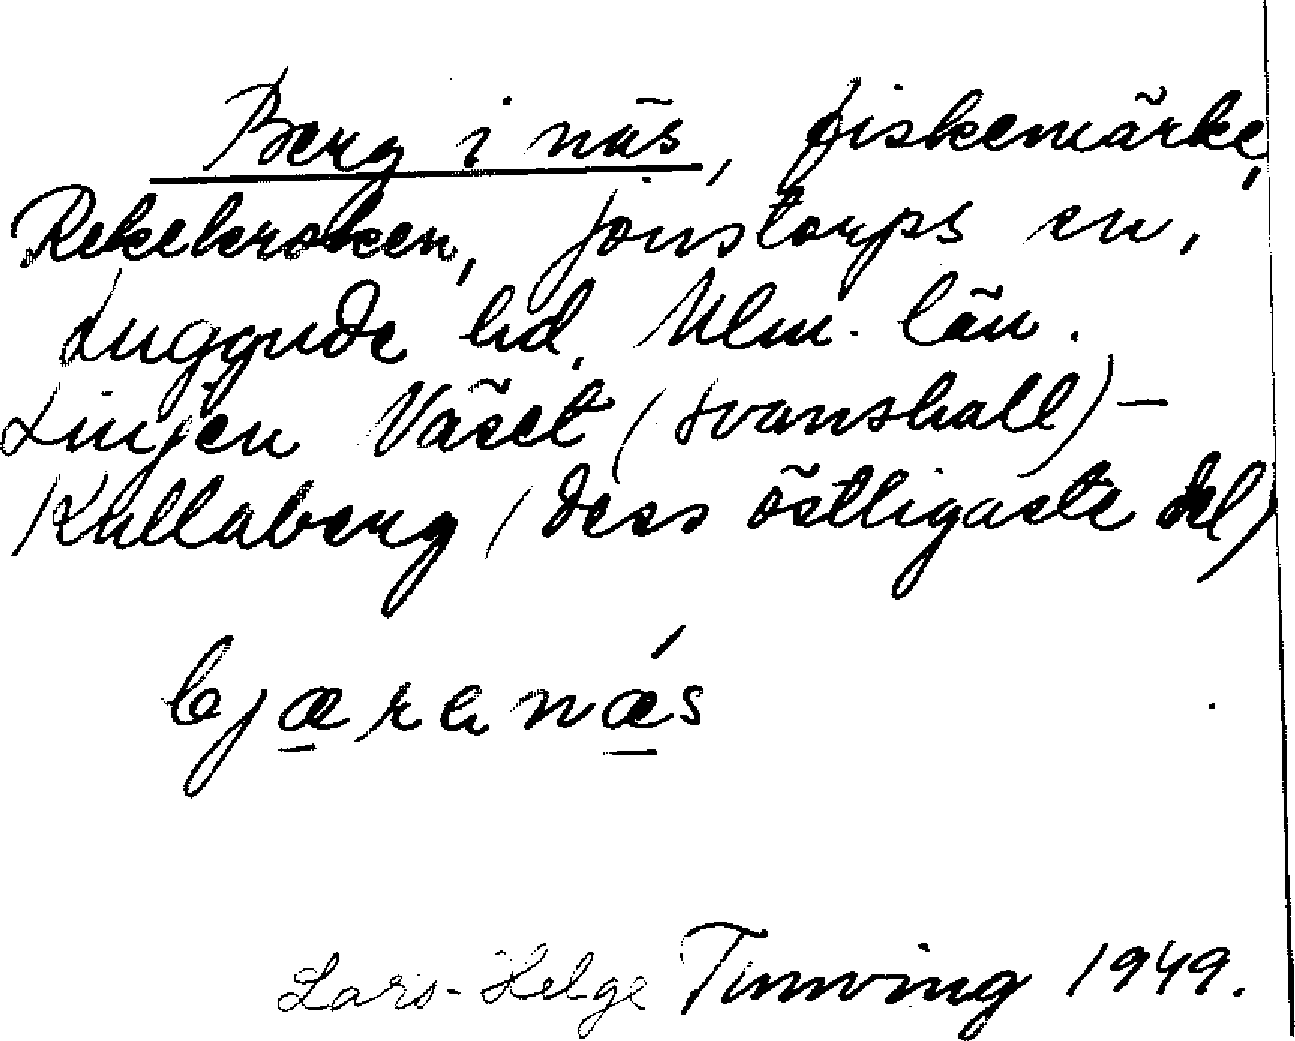 Berg i näs, fiskemärke,
Rekekroken, Jonstorps sn,
Luggude hd. Mlm. län.
Linjen Väset (Svanshall) –
Kullaberg (dess östligaste del)
bjæranǽs
Lars-Helge Tunving 1949.